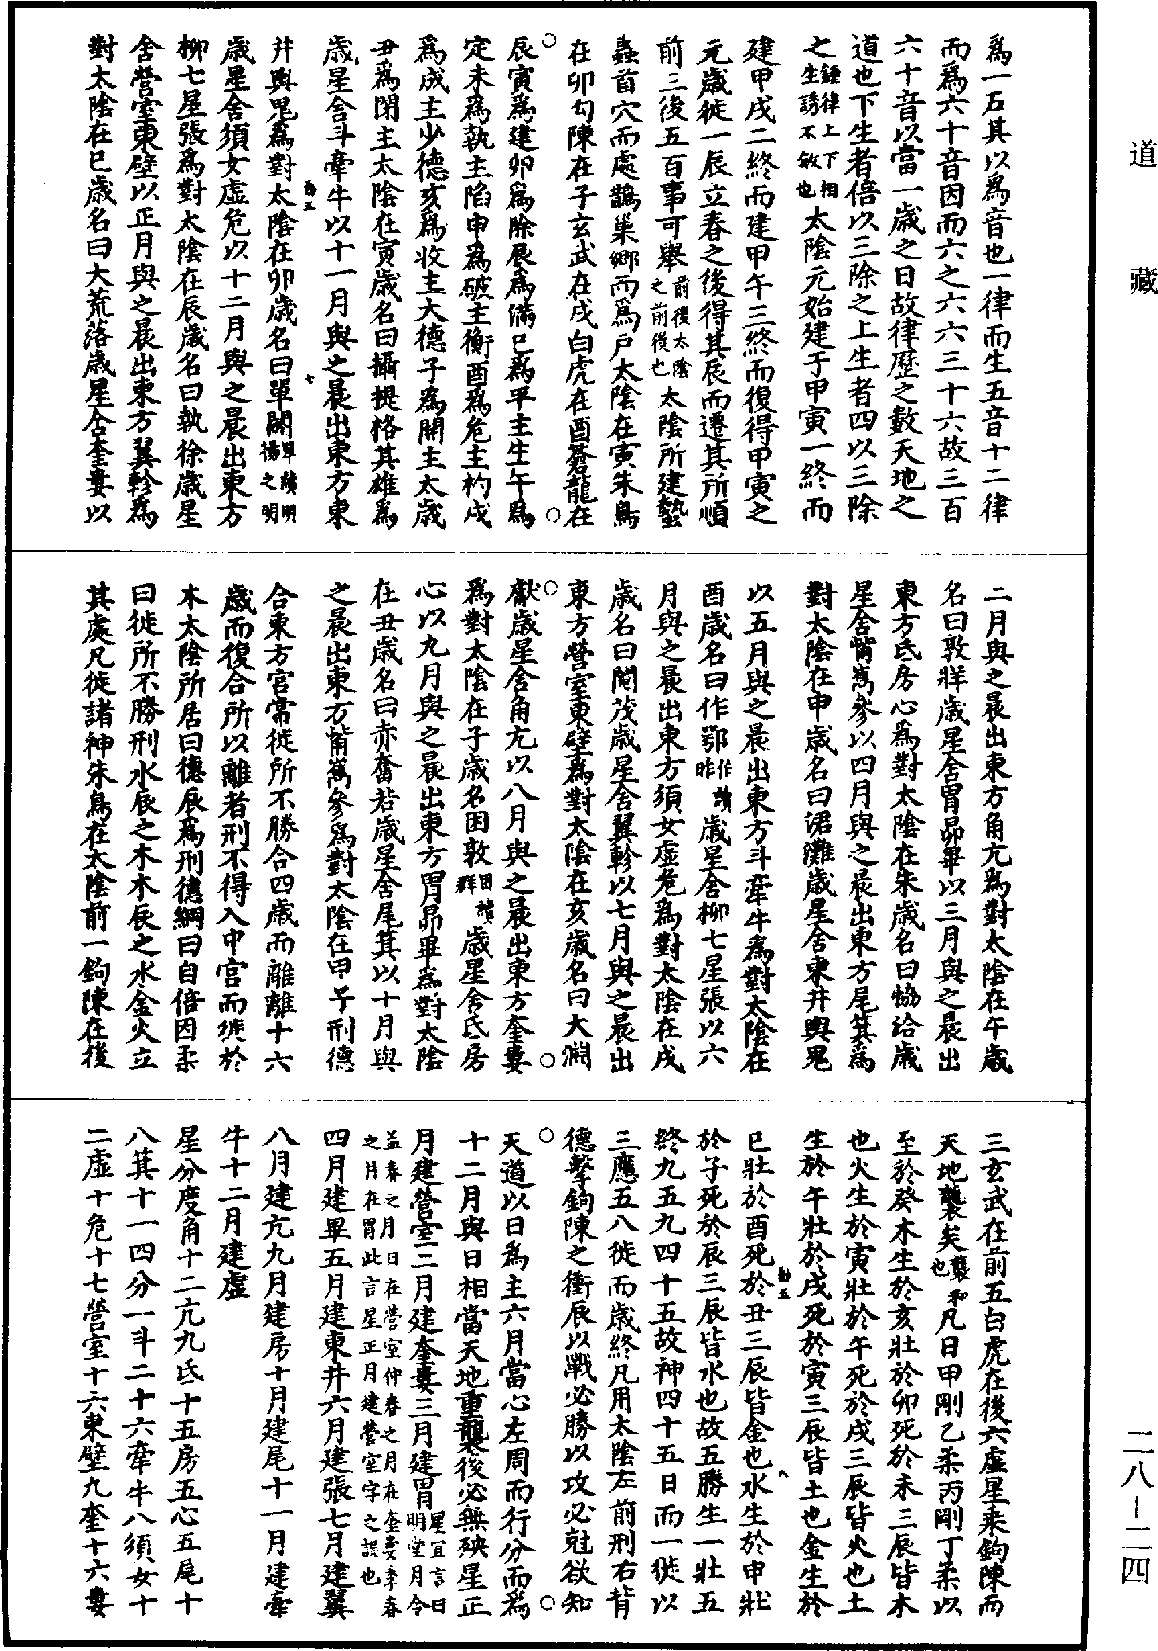 道藏
爲一石其以爲音也一律而生五音十二律
而爲六十音因而六之六六三十六故三百
六十音以當一歲之日故律歷之數天地之
道也下生者倍以三除之上生者四以三除
之鍾律上下相生誘不敏也太陰元始建于甲寅一終而
建甲戌二終而建甲午三終而復得甲寅之
元歲徙一辰立春之後得其辰而遷其所順
前三後五百事可舉前後太陰之前後也太陰所建蟄
蟲首穴而處鵲巢鄉而爲戶太陰在寅朱鳥
在卯勾陳在子玄武在戌白虎在酉蒼龍在
辰寅爲建卯爲除辰爲滿巳爲平主生午爲
定未爲執主陷申爲破主衡酉爲危主杓戌
爲成主少德亥爲收主大德子爲開主太歲
丑爲閉主太陰在寅歲名曰攝提格其雄爲
歲星舍斗牽牛以十一月與之晨出東方東
井與鬼爲對太陰在卯歲名曰單閼單讀明揚之明
歲星舍須女虛危以十二月與之晨出東方
柳七星張爲對太陰在辰歲名曰執徐歲星
舍營室東壁以正月與之晨出東方翼軫爲
對太陰在巳歲名曰大荒落歲星舍奎婁以
二月與之晨出東方角亢爲對太陰在午歲
名曰敦牂歲星舍胃昴畢以三月與之晨出
東方氐房心爲對太陰在未歲名曰協洽歲
星舍觜嶲參以四月與之晨出東方尾箕爲
對太陰在申歲名曰涒灘歲星舍東井輿鬼
以五月與之晨出東方斗牽牛爲對太陰在
酉歲名曰作鄂作讀昨歲星舍柳七星張以六
月與之晨出東方須女虛危爲對太陰在戌
歲名曰閹茂歲星舍翼軫以七月與之晨出
東方營室東壁爲對太陰在亥歲名曰大淵
獻歲星舍角亢以八月與之晨出東方奎婁
爲對太陰在子歲名困敦困讀群歲星舍氐房
心以九月與之晨出東方胃昴畢爲對太陰
在丑歲名曰赤奮若歲星舍尾箕以十月與
之晨出東方觜嶲參爲對太陰在甲子刑德
合東方宮常徙所不勝合四歲而離離十六
歲而復合所以離者刑不得入中宮而徙於
木太陰所居曰德辰爲刑德綱曰自倍因柔
曰徙所不勝刑水辰之木木辰之水金火立
其處凡徙諸神朱鳥在太陰前一鉤陳在後
三玄武在前五白虎在後六虛星乘鉤陳而
天地襲矣襲和也凡日甲剛乙柔丙剛丁柔以
至於癸木生於亥壯於卯死於未三辰皆木
也火生於寅壯於午死於戌三辰皆火也土
生於午壯於戌死於寅三辰皆土也金生於
巳壯於酉死於丑三辰皆金也水生於申壯
於子死於辰三辰皆水也故五勝生一壯五
終九五九四十五故神四十五日而一徙以
三應五八徙而歲終凡用太陰左前刑右背
德擊鉤陳之衝辰以戰必勝以攻必尅欲知
天道以日爲主六月當心左周而行分而爲
十二月與日相當天地重襲後必無殃星正
月建營室二月建奎婁三月建胃星宜言日明堂月令
孟春之月日在營室仲春之月在奎婁季春之月在胃此言星正月建營室字之誤也
四月建畢五月建東井六月建張七月建翼
八月建亢九月建房十月建尾十一月建牽
牛十二月建虛
星分度角十二亢九氐十五房五心五尾十
八箕十一四分一斗二十六牽牛八須女十
二虛十危十七營室十六東壁九奎十六婁
二八－二四